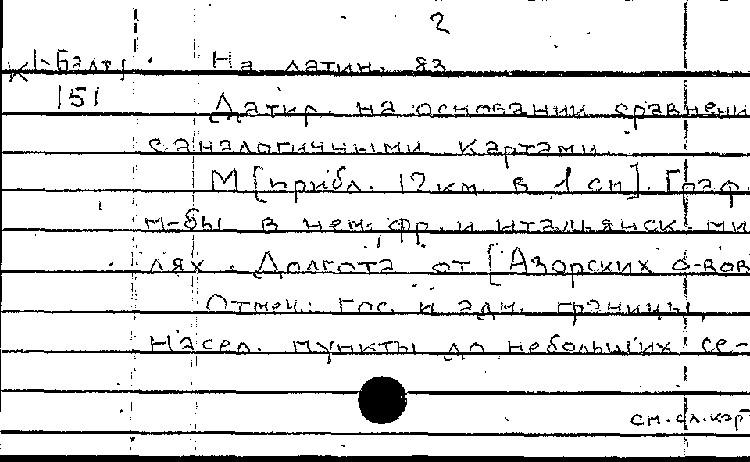 2
К 1-Балт,
151
На латин. яз
Датир. на основании сравнени
с аналогичными картами
М [прибл. 12 км в 1 см]. Граф
м-бы в нем., фр. и итальянск. ми
лях. Долгота от [Азорских о-вов
Отмеч.: гос. и адм. границы,
Насел. пункты до небольших се-
см. сл. кар